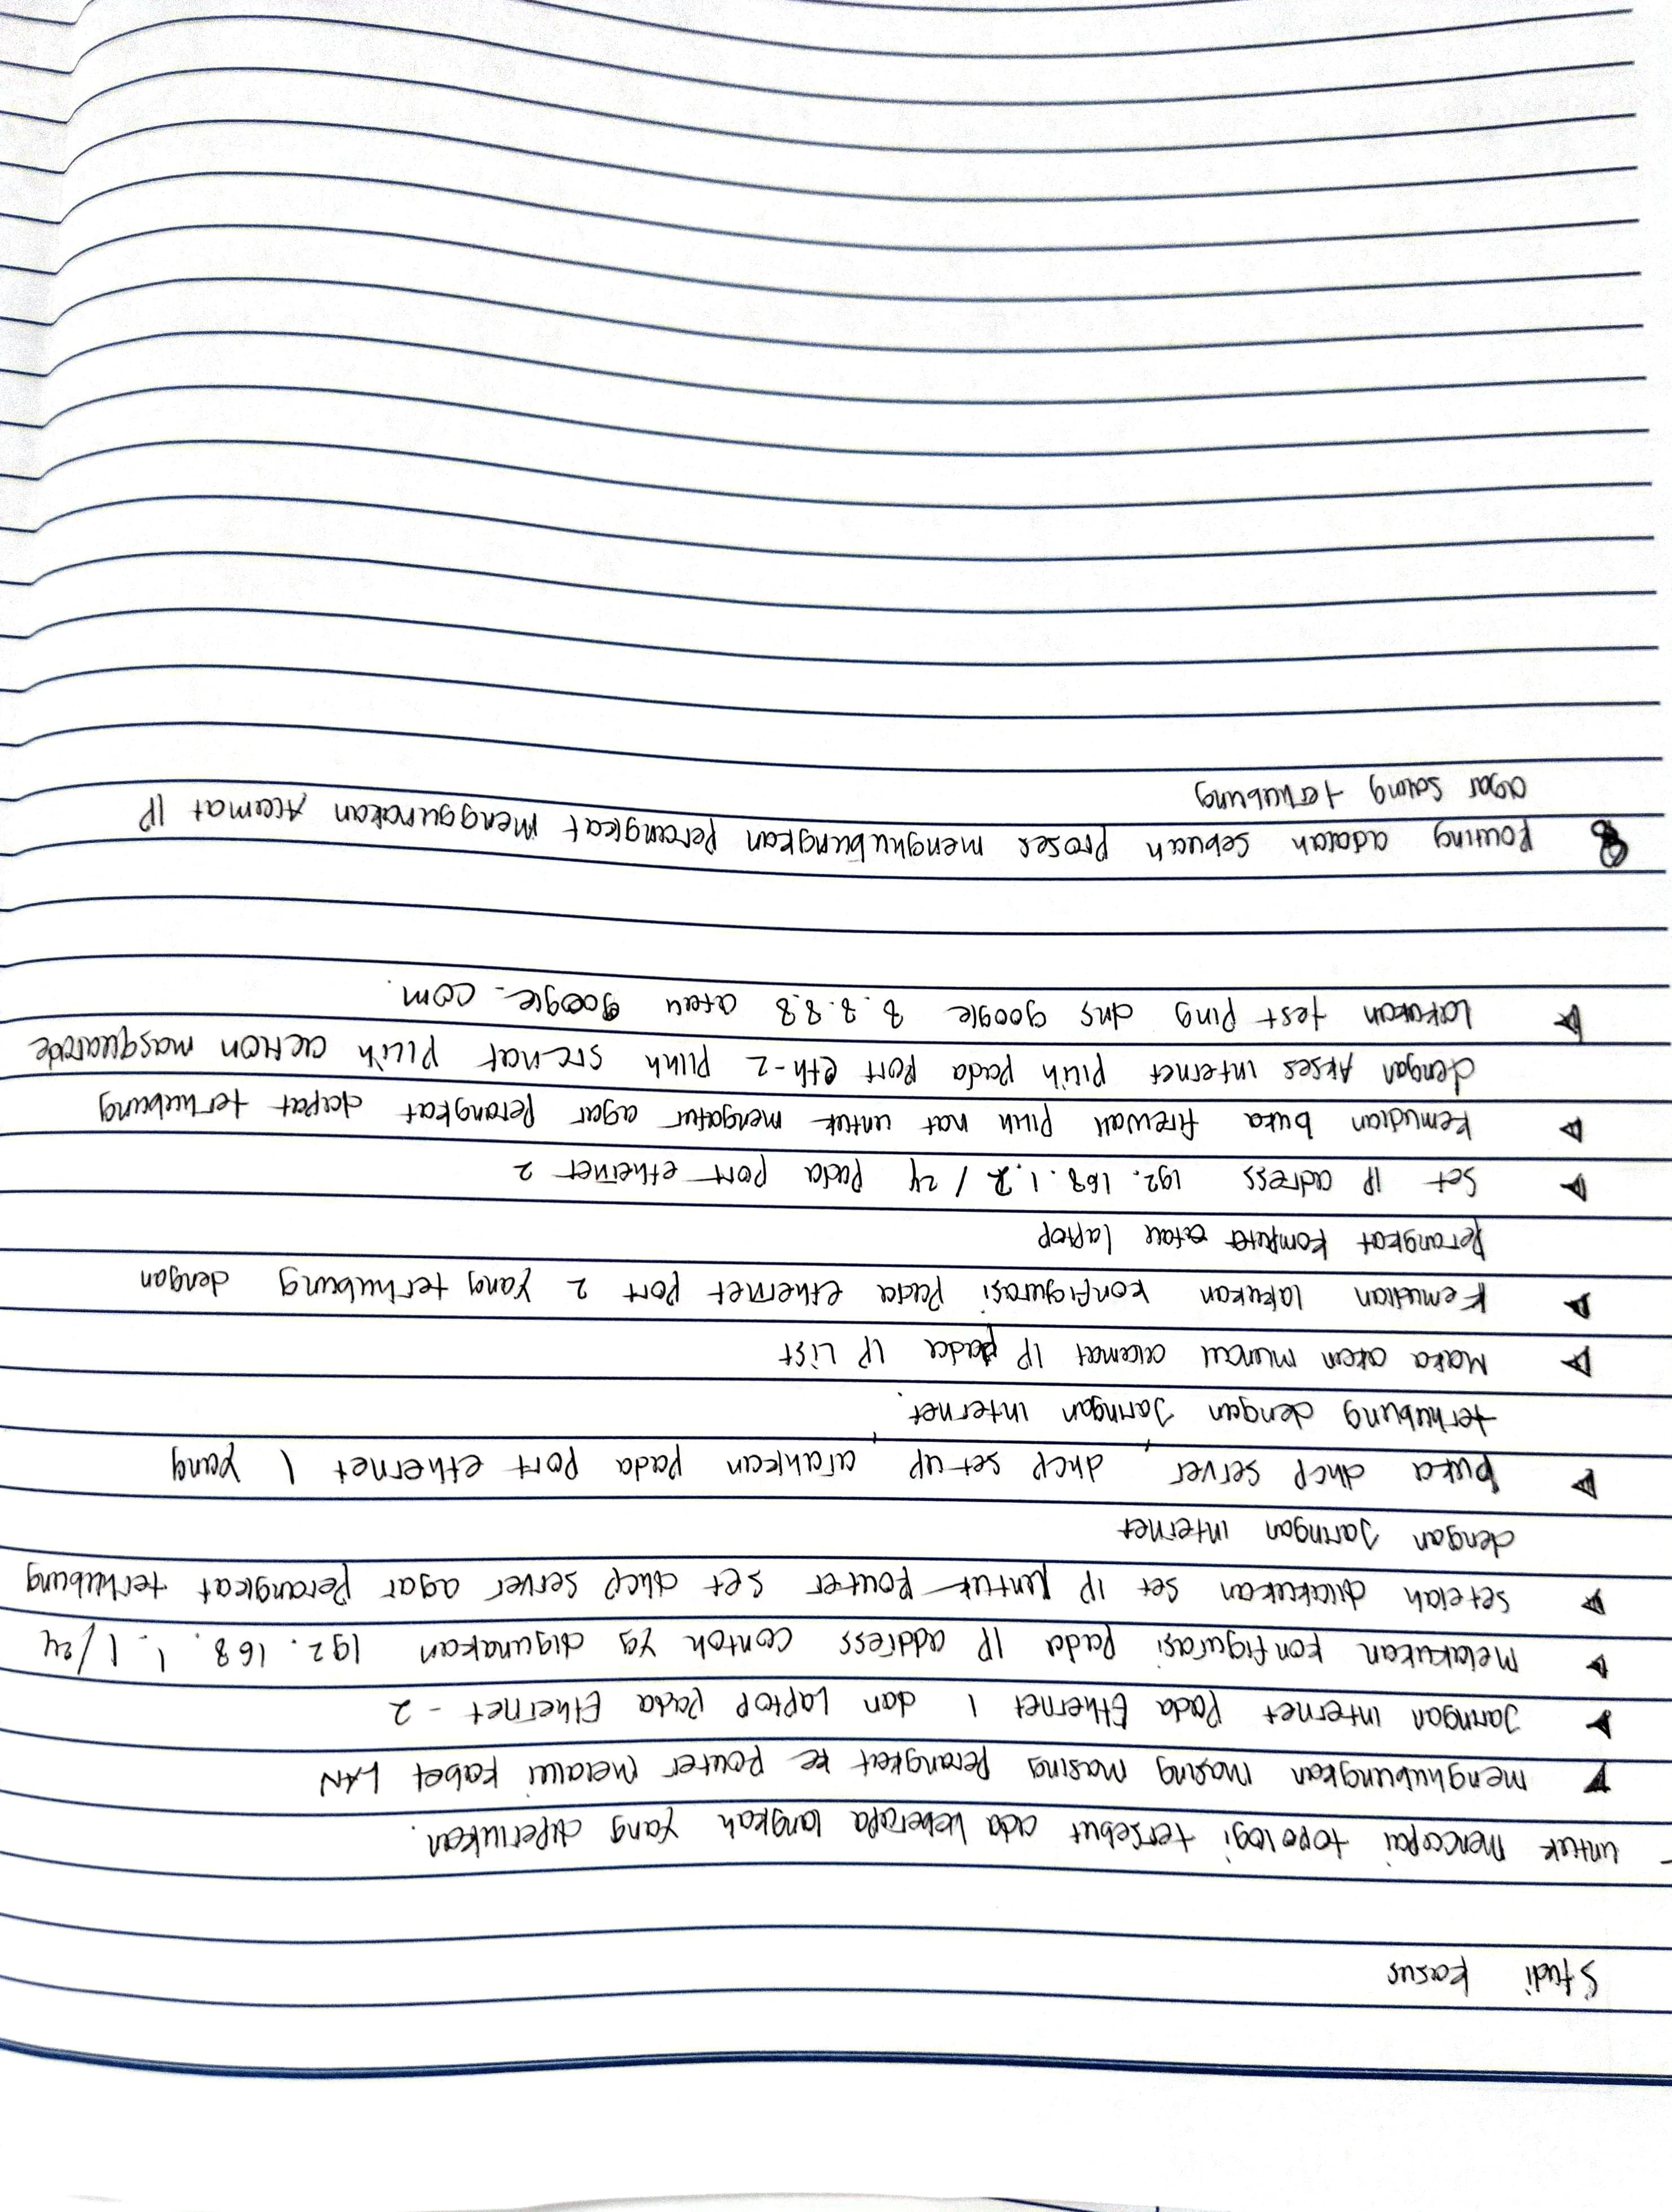 Studi kasus
- untuk menccapai topologi tersebut ada beberapa langkah yang diperlukan.
menghubungkan masing masing Perangkat ke Router Melalui kabel LAN
Jaringan internet Pada Ethernet 1 dan Laptop Pada Ethernet - 2
Melakukan konfigurasi pada IP address contoh yg digunakan 192. 168. 1. 1/24
setelah dilakukan set IP untuk Router set dhcp server agar Perangkat terhubung
dengan Jaringan internet
buka dhcp server, dhcp set up, arahkan pada port ethernet 1 yang
terhubung dengan Jaringan internet.
Maka akan muncul alamat IP pada IP List
Kemudian lakukan konfigurasi Pada ethernet port 2 Yang terhubung dengan
Perangkat komputer atau laptop
Set IP adress 192. 168. 1. 2 / 24 Pada port ethernet 2
kemudian buka firewall pilih nat untuk mengatur agar Perangkat dapat terhubung
dengan Akses internet pilih pada port eth-2 pilih srcnat Pilih action masquarade
Lakukan test Ping dns google 8.8.8.8 atau google.com.
8 Routing adalah sebuah Proses menghubungkan Perangkat Menggunakan Alamat IP
agar saling terhubung